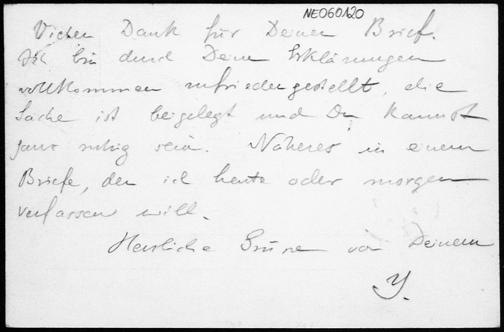 NE060120
Vielen Dank für Deinen Brief.
Ich bin durch Deine Erklärungen
vollkommen zufriedengestellt, die
Sache ist beigelegt und Du kannst
ganz ruhig sein. Näheres in einem
Briefe, den ich heute oder morgen
verfassen will.
Herzliche Grüsse von Deinem
Y.